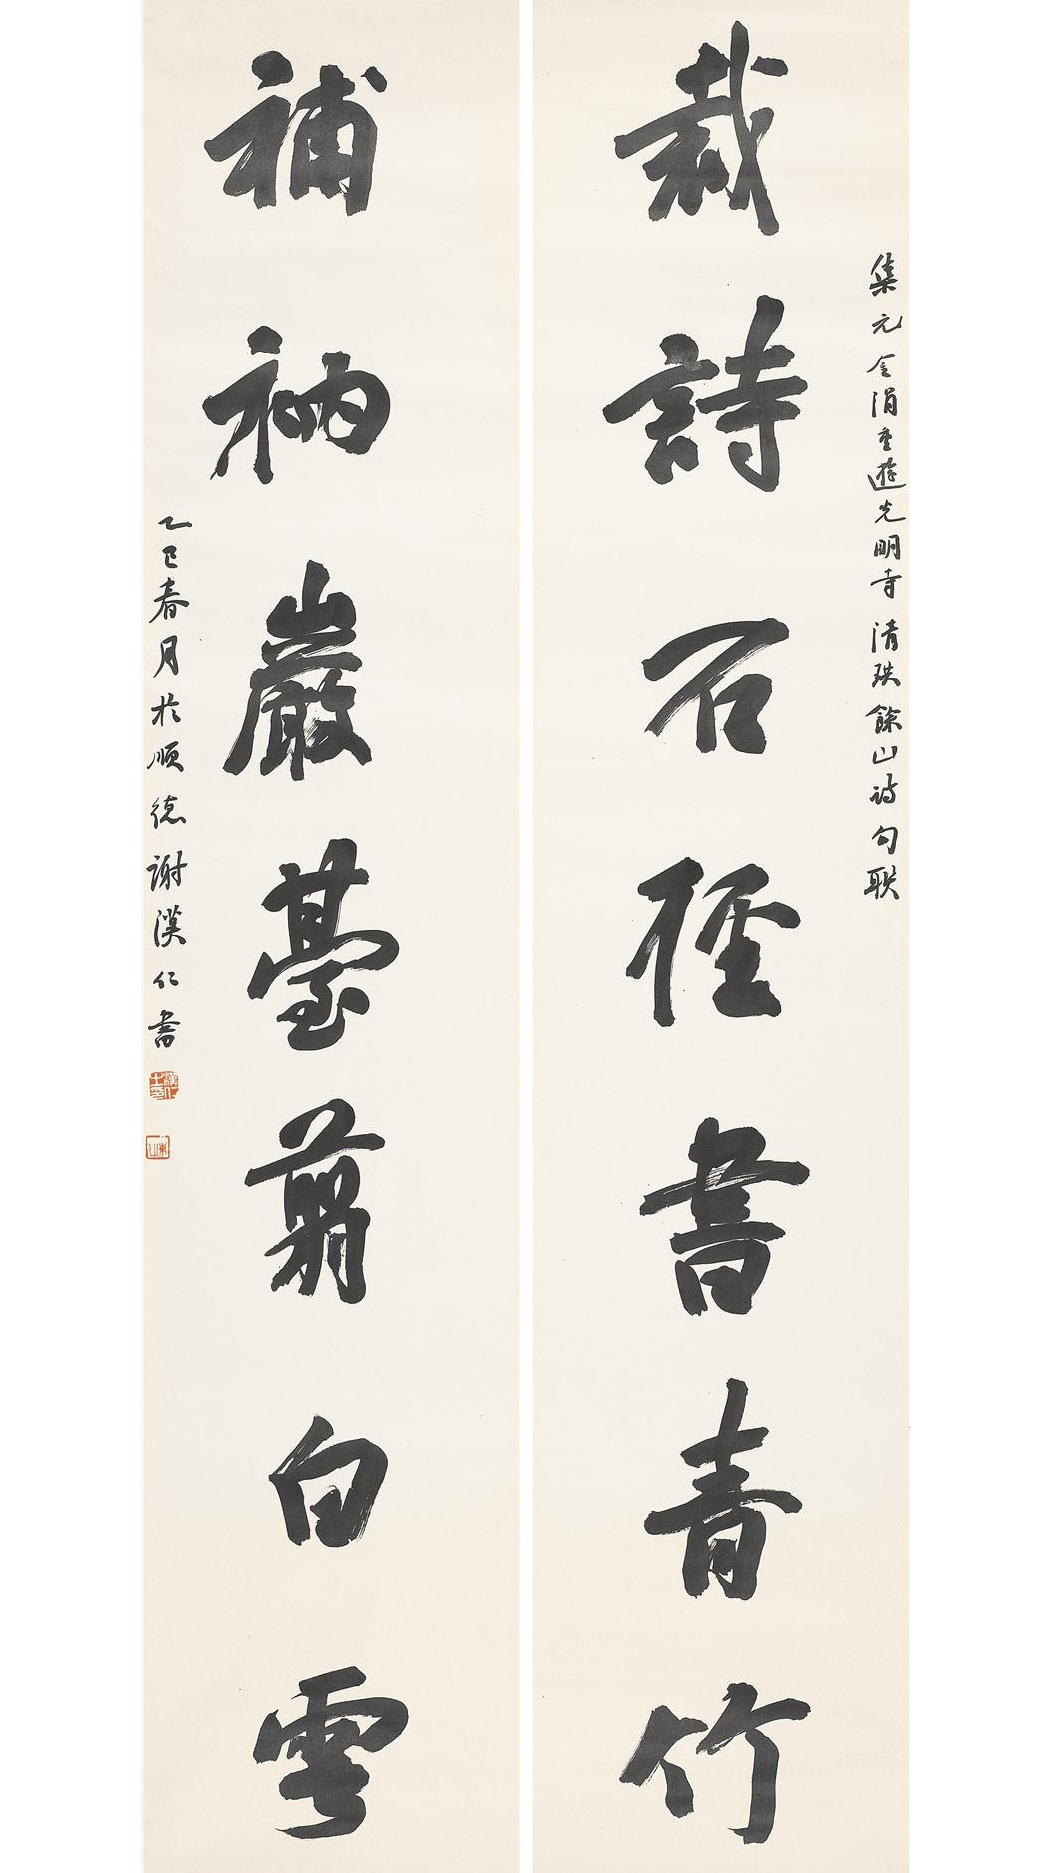 集元金涓重遊光明寺清珙餘山詩句聯
裁詩石徑書青竹
補衲巖臺翦白雲
乙巳春月於順德謝漢仁書